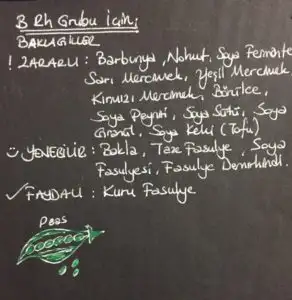 B Rh Grubu İçin;
BAKLAGİLLER
! ZARARLI : Barbunya, Nohut, Soya Fermante
Sarı Mercimek, Yeşil Mercimek
Kırmızı Mercimek, Börülce,
Soya Peyniri, Soya Sütü, Soya
Soya Keki (Tofu)
YENEBİLİR : Bakla, Taze Fasulye, Soya
Fasulyesi, Fasulye Demirhindi.
✓ FAYDALI : Kuru Fasulye
Peas